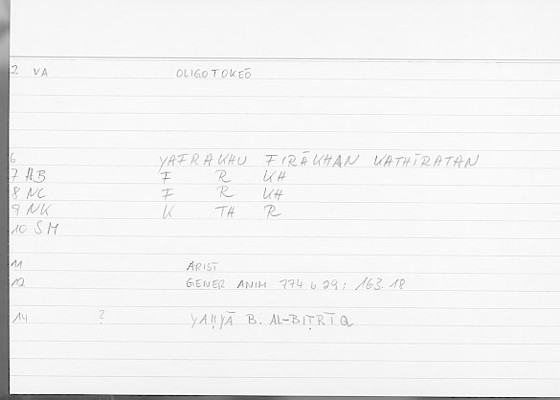 2 VA OLIGOTOKEŌ
6 YAFRAKHU FIRĀKHAN KATHĪRATAN
7 AB F R KH
8 NC F R KH
9 NK K TH R
10 SM
11 ARIST
12 GENER ANIM 774 b 29: 163.18
14 ? YAḤYĀ B. AL-BIṬRĪQ